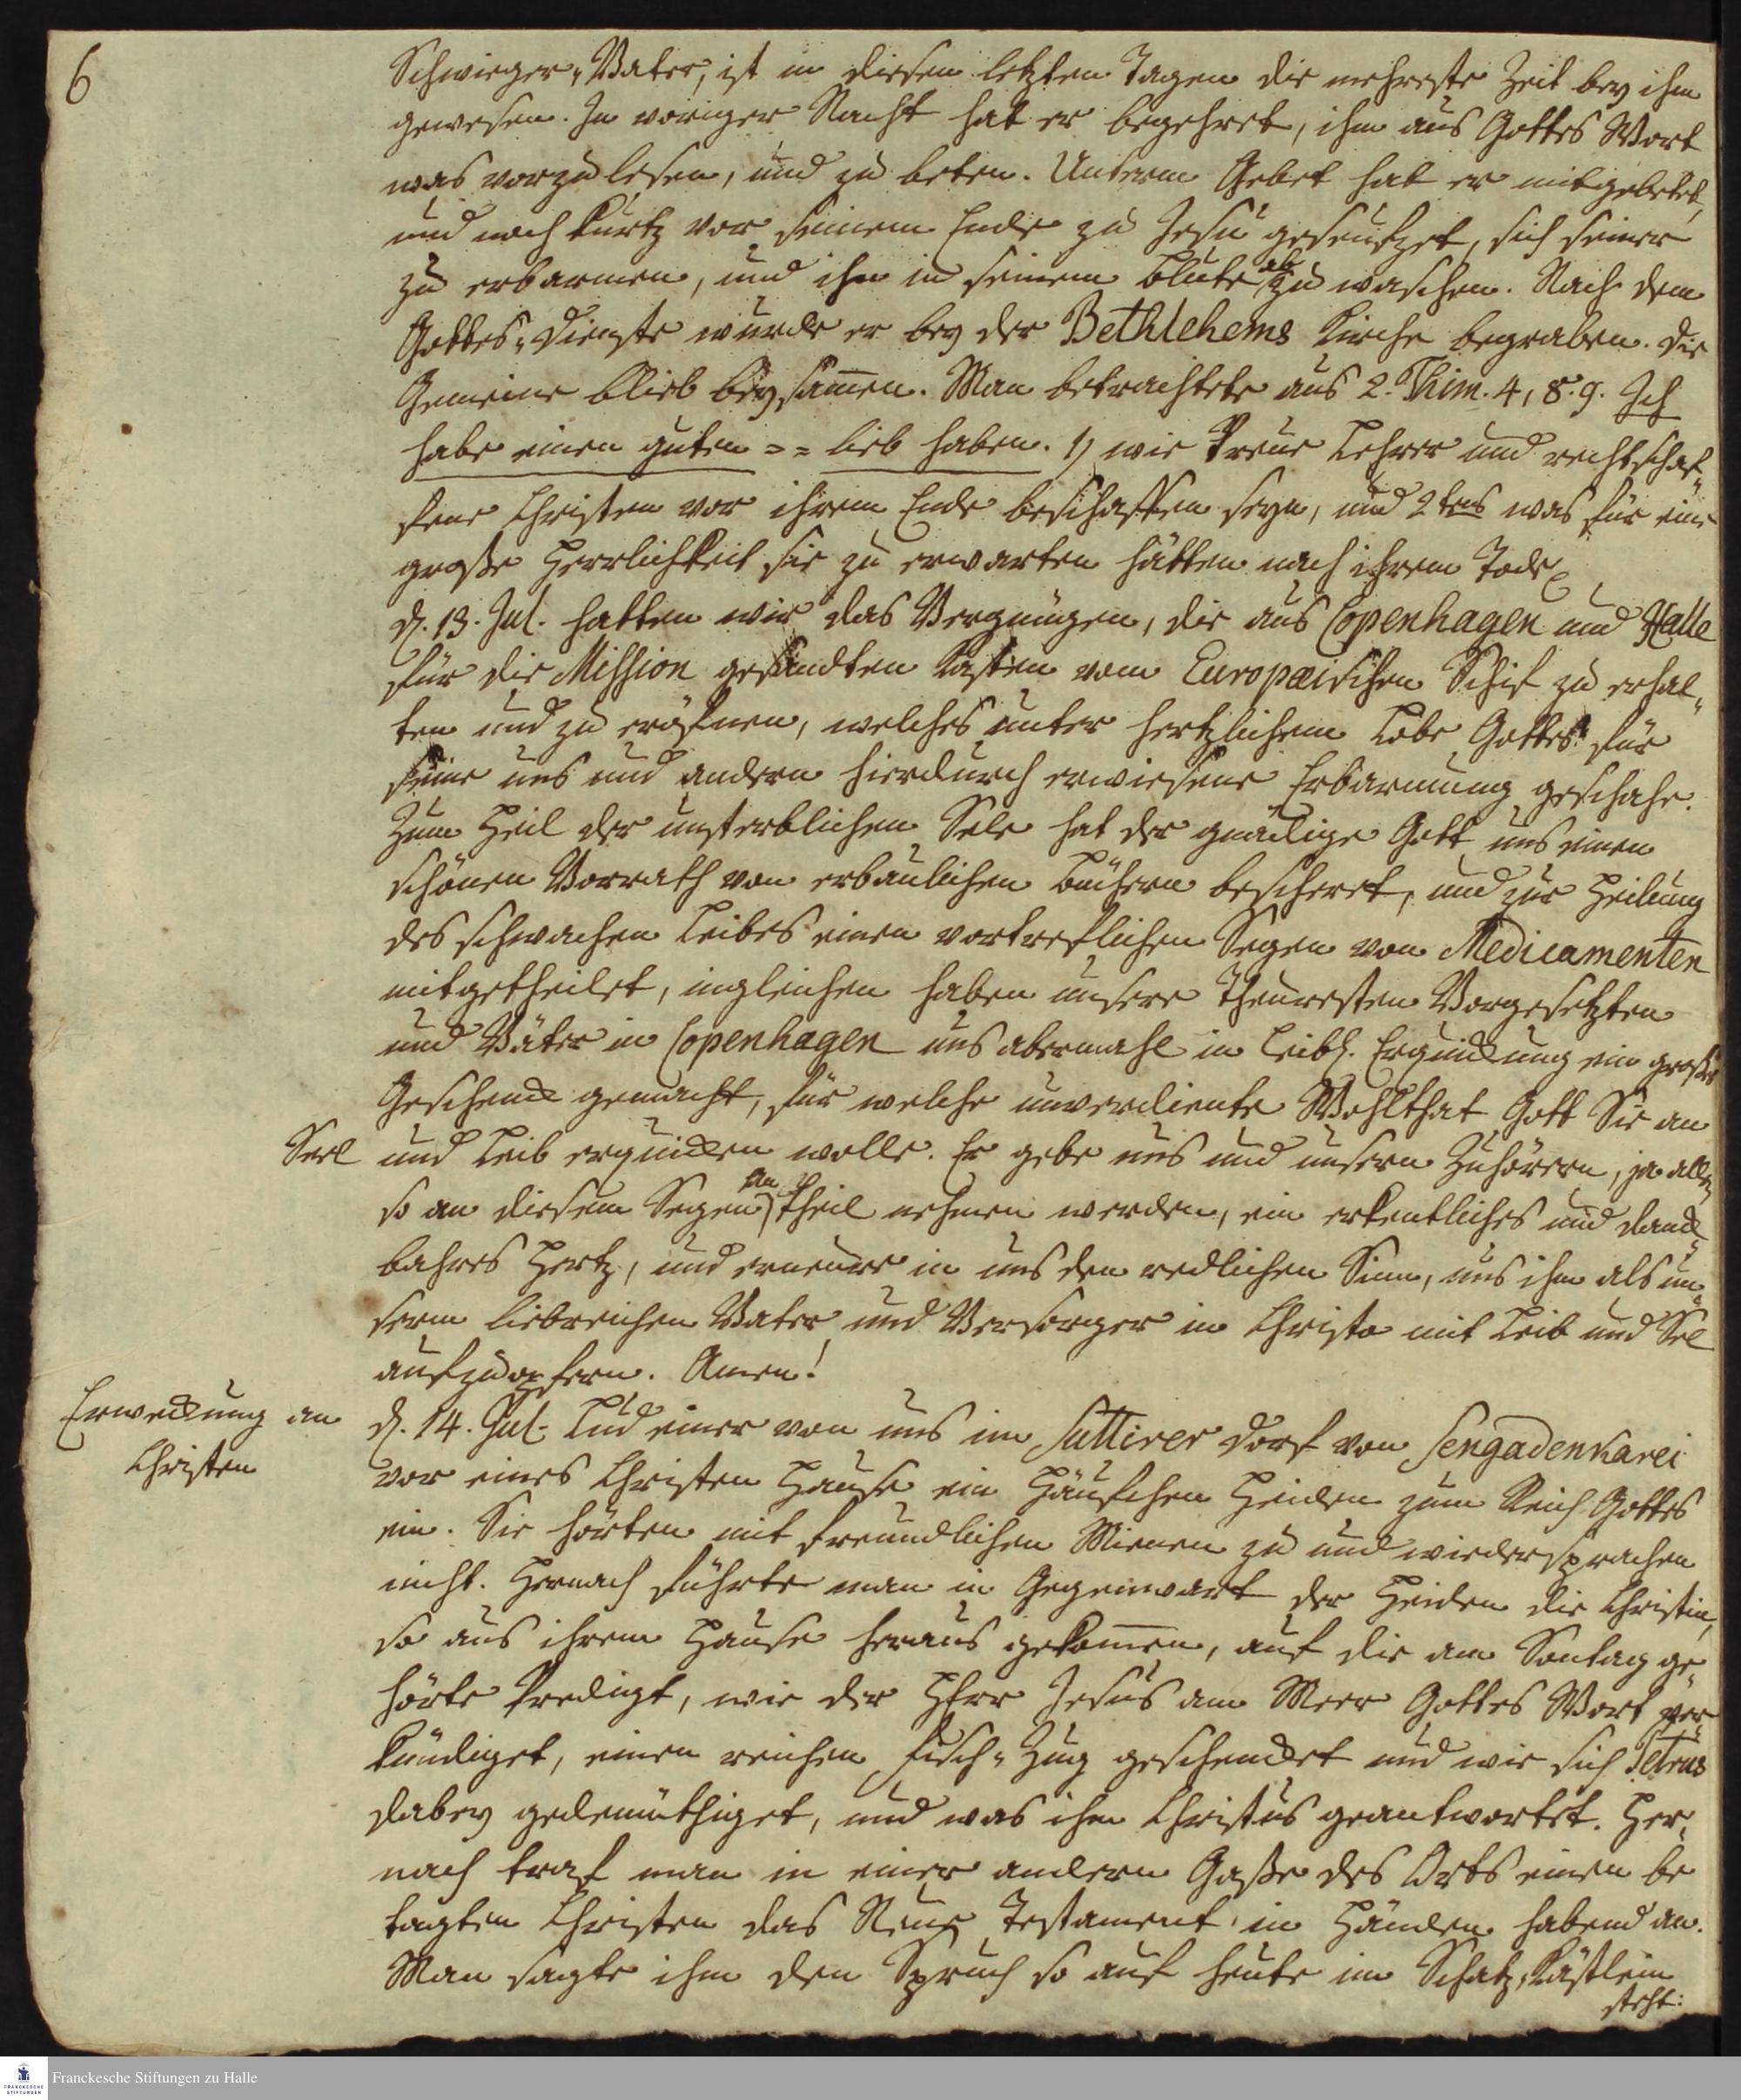 6
Schwieger-Vater, ist in diesen letzten Tagen die mehreste Zeit bey ihm
gewesen. In voriger Nacht hat er begehret, ihm aus Gottes Wort
was vorzulesen, und zu beten. Unterm Gebet hat er mitgebetet,
und noch kurtz vor seinem Ende zu Jesu geseufzet, sich seiner
zu erbarmen, und ihn in seinem Blute abzuwaschen. Nach dem
Gottes-Dienste wurde er bey der Bethlehems Kirche begraben. Die
Gemeine blieb beysam̄en. Man betrachtete aus 2. Thim. 4, 8. 9. Ich
habe einen guten == lieb haben. 1) wie treue Lehrer und rechtschaf-
fene Christen vor ihrem Ende beschaffen seyn, und 2tens was für eine
große Herrlichkeit sie zu erwarten hätten nach ihrem Tode
d. 13. Jul. hatten wir das Vergnügen, die aus Copenhagen und Halle
für die Mission gesandten Kasten vom Europæischen Schif zu erhal-
ten und zu eröfnen, welches unter hertzlichem Lobe Gottes für
seine uns und andern hierdurch erwiesene Erbarmung geschahe.
Zum Heil der unsterblichen Sele hat der gnädige Gott uns einen
schönen Vorrath von erbaulichen Büchern bescheret, und zur Heilung
des schwachen Leibes einen vortreflichen Segen von Medicamenten
mitgetheilet, ingleichen haben unsere Theuresten Vorgesetzten
und Väter in Copenhagen uns abermahl in Leibl. Erquickung ein großes
Geschenck gemacht, für welche unverdiente Wohlthat Gott Sie an
Seel und Leib erquicken wolle. Er gebe uns und unsern Zuhörern, ja allen
so an diesem Segen Antheil nehmen werden, ein erkentliches und danck-
bahres Hertz, und erneure in uns den redlichen Sinn, uns ihm als un-
serm liebreichen Vater und Versorger in Christo mit Leib und Sel
aufzuopfern. Amen!
Erweckung an
Christen
d. 14. Jul. Lud einer von uns im Suttirer Dorf von Sengadenkarei
vor eines Christen Hause ein Häufchen Heiden zum Reich Gottes
ein. Sie hörten mit freundlichen Mienen zu und wiedersprachen
nicht. Hernach führte man in Gegenwart der Heiden die Christin,
so aus ihrem Hause heraus gekom̄en, auf die am Sontag ge-
hörte Predigt, wie der HErr Jesus am Meer Gottes Wort ver-
kündiget, einen reichen Fisch-Zug geschencket und wie sich Petrus
dabey gedemüthiget, und was ihm Christus geantwortet. Her-
nach traf man in einer andern Gaße des Orts einen be
tagten Christen das Neue Testament in Händen habend an.
Man sagte ihm den Spruch so auf heute im Schatz-Kästlein
steht:
Franckesche Stiftungen zu Halle
FRANCKESCHE
STIFTUNGEN